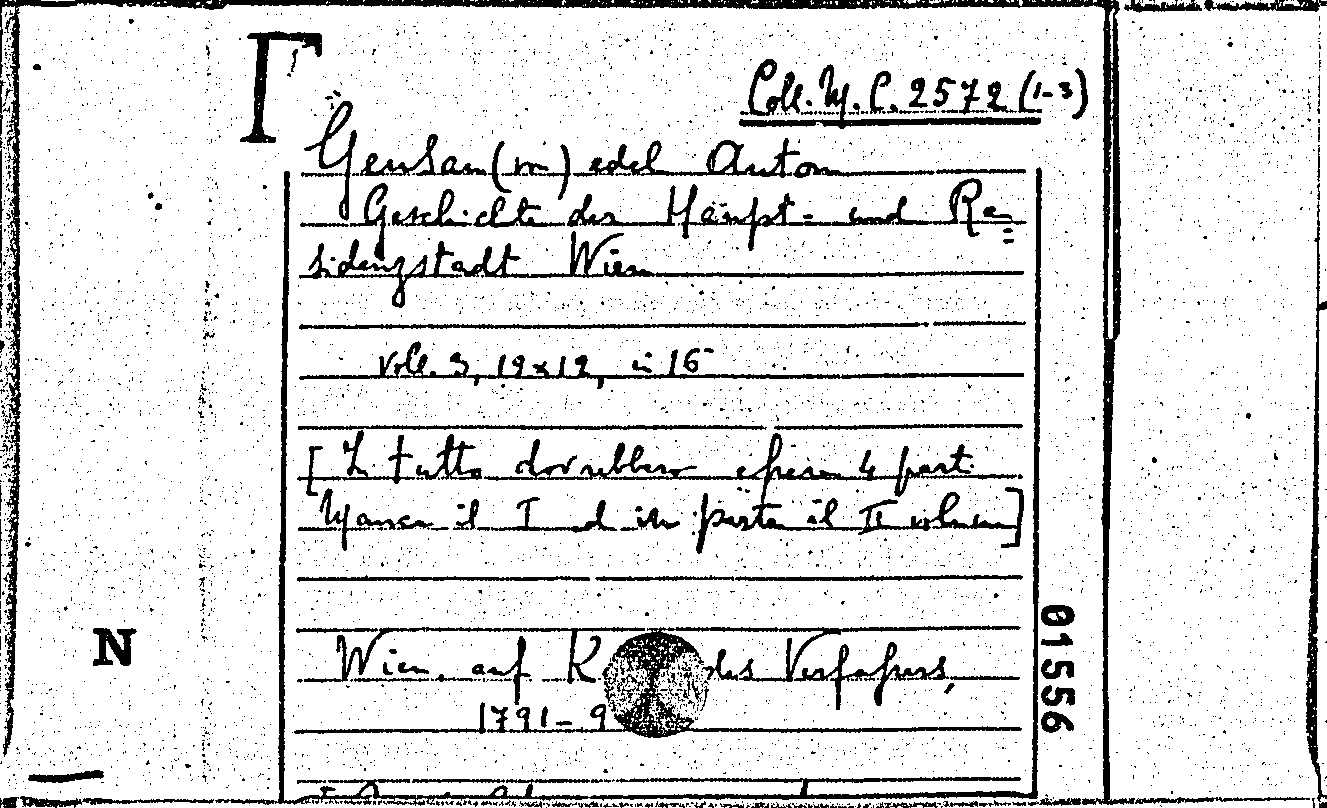 Coll. M. C. 2572 (1-3)
Gensau (von) edel Anton
Geschichte der Haupt- und Re=
sidenzstadt Wien
voll. 3, 19x12, in 16°
[In tutto dovrebbero essere 4 parti
Manca il I ed in parte il II volume]
Wien, auf K des Verfassers,
1791-9
N
01556